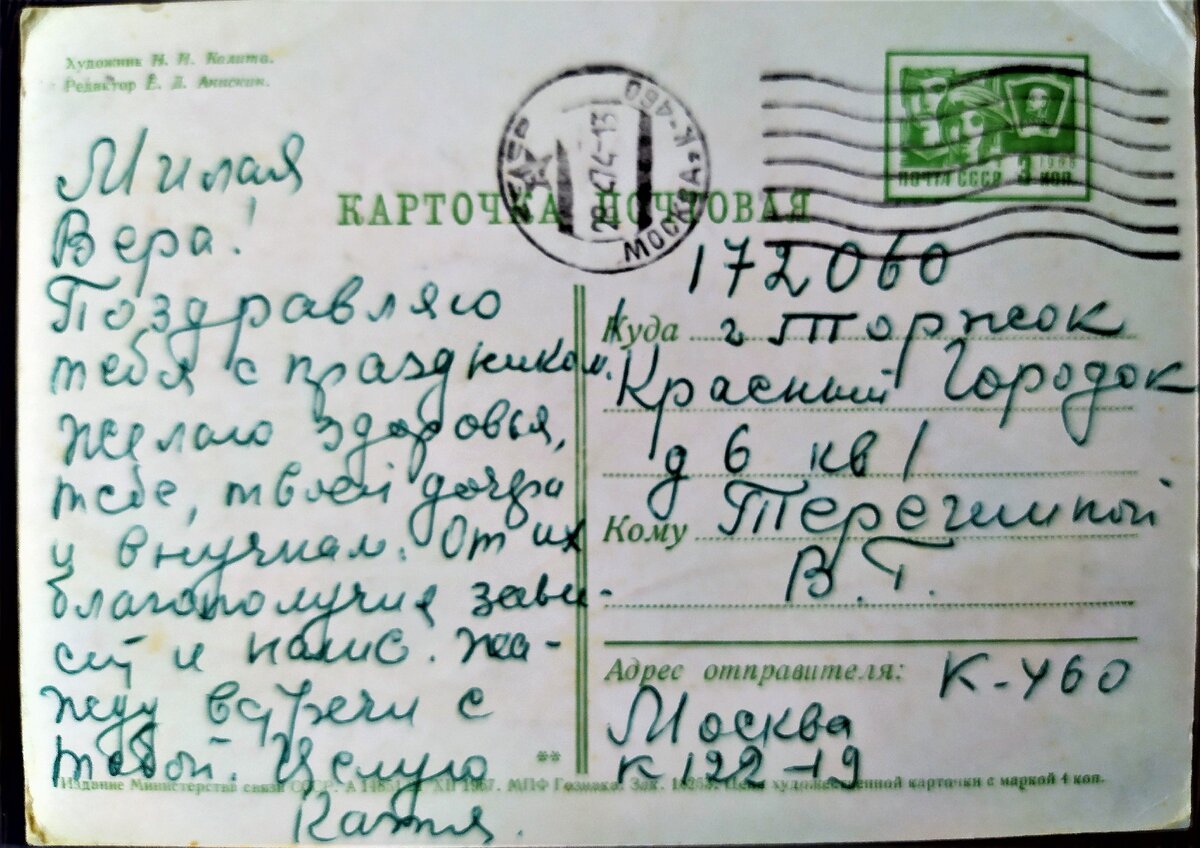 Художник И. И. Калита.
Редактор Е. Д. Анискин.
Милая
Вера!
Поздравляю
тебя с праздником.
Желаю здоровья,
тебе, твоей дочери
и внучкам. От их
благополучия зави-
сит и наше. Жа-
жду встречи с
тобой. Целую
Катя.
КАРТОЧКА ПОЧТОВАЯ
МОСКВА К-460
ПОЧТА СССР 3 коп.
1966
172060
Куда г. Торжок
Красный Городок
д 6 кв 1
Кому
В. Т.
Адрес отправителя: К-460
Москва
К 122-19
**
Издание Министерства связи СССР. XII 1967. МПФ Гознака. Зак. Цена художественной карточки с маркой 4 коп.